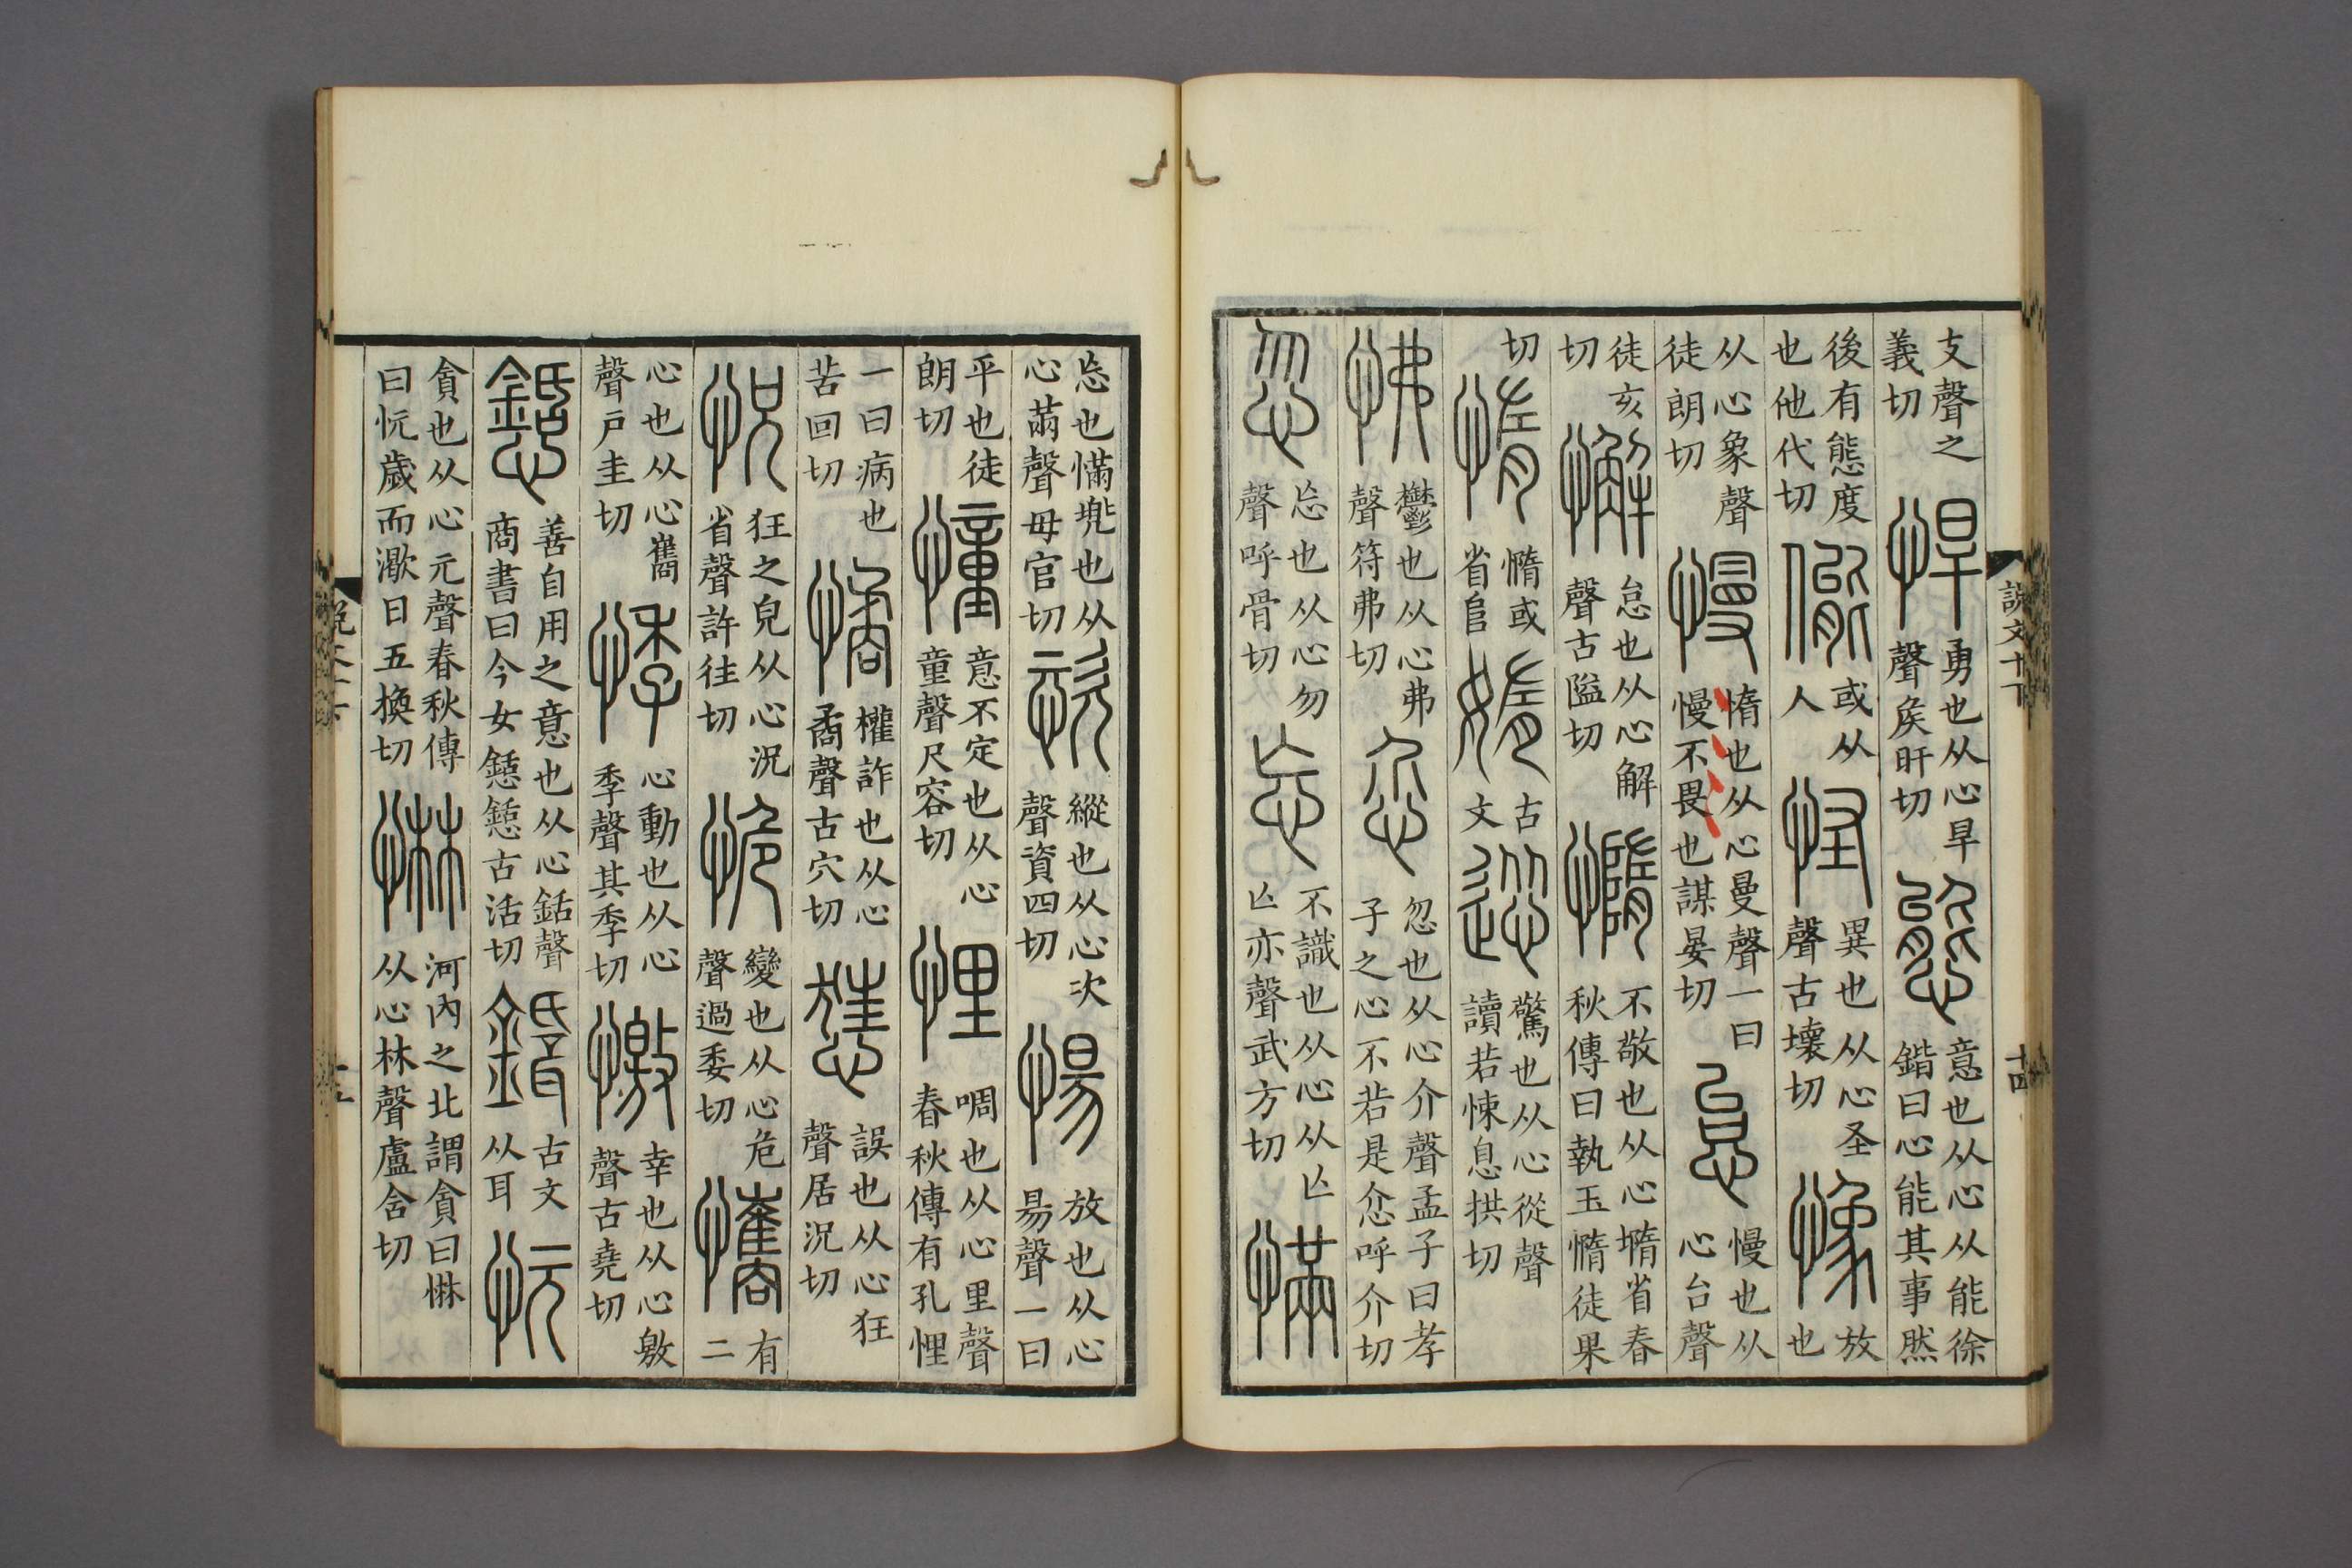 說文十下
十四
支聲之義切悍勇也从心旱聲矦旰切態意也从心从能徐鍇曰心能其事然
後有態度也他代切㑷或从人怪異也从心圣聲古壞切𢠽放也
从心象聲徒朗切慢惰也从心曼聲一曰慢不畏也謀晏切怠慢也从心台聲
徒亥切懈怠也从心解聲古隘切憜不敬也从心㙐省春秋傳曰執玉憜徒果
切惰憜或省𨸏媠古文慫驚也从心從聲讀若悚息拱切
怫鬱也从心弗聲符弗切忽也从心介聲孟子曰孝子之心不若是呼介切
忽忘也从心勿聲呼骨切忘不識也从心从亾亾亦聲武方切慲
忘也慲兠也从心㒼聲母官切恣縱也从心次聲資四切愓放也从心昜聲一曰
平也徒朗切憧意不定也从心童聲尺容切悝啁也从心里聲春秋傳有孔悝
一曰病也苦回切憰權詐也从心矞聲古穴切誤也从心狂聲居況切
怳狂之皃从心況省聲許往切恑變也从心危聲過委切有二
心也从心巂聲戶圭切悸心動也从心季聲其季切憿幸也从心敫聲古堯切
善自用之意也从心銛聲商書曰今女古活切古文从耳忨
貪也从心元聲春秋傳曰忨歲而㵣日五換切惏河內之北謂貪曰惏从心林聲盧含切